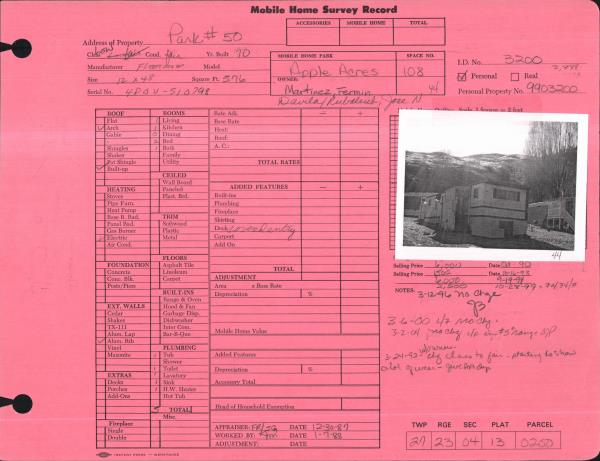 Mobile Home Survey Record
ACCESSORIES MOBILE HOME TOTAL
Park # 50
Address of Property
Class Low Cond. fair Yr. Built 70
Manufacturer Model
Size 12 x 48 Square Ft. 576
Serial No.
MOBILE HOME PARK SPACE NO.
Apple Acres 108
OWNER:
Martinez, Fermin 44
I.D. No. 3200
Personal Real
Personal Property No. 9903200
ROOF
Flat
Arch
Gable
Shingles
Shakes
Pct Shingle
Built-up
HEATING
Stoves
Pipe Furn.
Heat Pump
Base B. Rad.
Panel Rad.
Gas Burner
Electric
Air Cond.
FOUNDATION
Concrete
Conc. Blk.
Posts/Piers
EXT. WALLS
Cedar
Shakes
TX-111
Alum. Lap
Alum. Rib
Vinyl
Masonite
EXTRAS
Decks
Porches
Add-Ons
Fireplace
Single
Double
ROOMS
Living
1 Kitchen
0 Dining
2 Bed
1 Bath
Family
Utility
CEILED
Wall Board
Paneled
Plast. Brd.
TRIM
Softwood
Plastic
Metal
FLOORS
Asphalt Tile
Linoleum
Carpet
BUILT-INS
Range & Oven
Hood & Fan
Garbage Disp.
Dishwasher
Inter Com.
Bar-B-Que
PLUMBING
1 Tub
Shower
1 Toilet
1 Lavatory
1 Sink
1 H.W. Heater
Hot Tub
5 TOTAL
Misc.
Rate Adj. - +
Base Rate
Heat:
Roof:
A. C.:
TOTAL RATES
ADDED FEATURES - +
Built-ins
Plumbing
Fireplace
Skirting
Deck wood entry
Carport
Add On
TOTAL
ADJUSTMENT
Area x Base Rate
Depreciation %
Mobile Home Value
Added Features
Depreciation %
Accessory Total
Head of Household Exemption
APPRAISER: FR/SG DATE 12-30-87
WORKED BY: DATE 1-7-88
ADJUSTMENT: DATE
44
Selling Price 6,000 Date
Selling Price Date 10-16-93
NOTES:
3-12-96 No Chge
3-6-00 no chg.
3-2-01 no chg
3-24-92 chg class to fair - starting to show
TWP RGE SEC PLAT PARCEL
27 23 04 13 0250